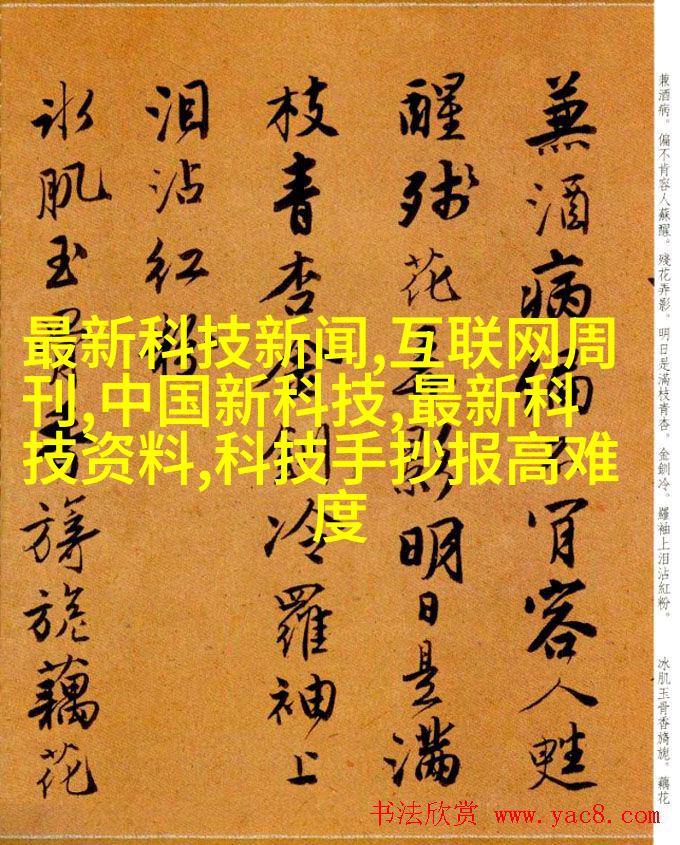 蕪酒病偏不肯容人甦
醒残花弄影明日是满
枝青杏金釧冷羅袖上
泪沾红粉
冰肌玉骨香旖旎藕花
兼酒病。偏不肯容人蘇醒。殘花弄影。明日是滿枝青杏。金釧冷。羅袖上泪沾紅粉。
冰肌玉骨香旖旎。藕花
最新科技新闻,互联网周
刊,中国新科技,最新科
技资料,科技手抄报高难
度
书法欣赏 www.yac8.com